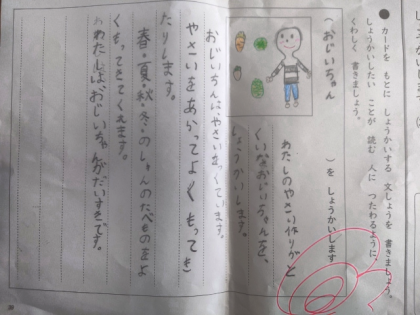 ● カードを もとに しょうかいする 文しょうを 書きましょう。
しょうかいしたい ことが 読む 人に つたわるように、
くわしく 書きましょう。
(おじいちゃん)を しょうかいします
わたしのやさい作りがと
くいなおじいちゃんを、
しょうかいします。
おじいちゃんは、やさいをつくています。
やさいをあらってよくもってき
たりします。
春・夏・秋・冬のしゅんのたべものをよ
くもってきてくれます。
わたしはおじいちゃんがだいすきです。